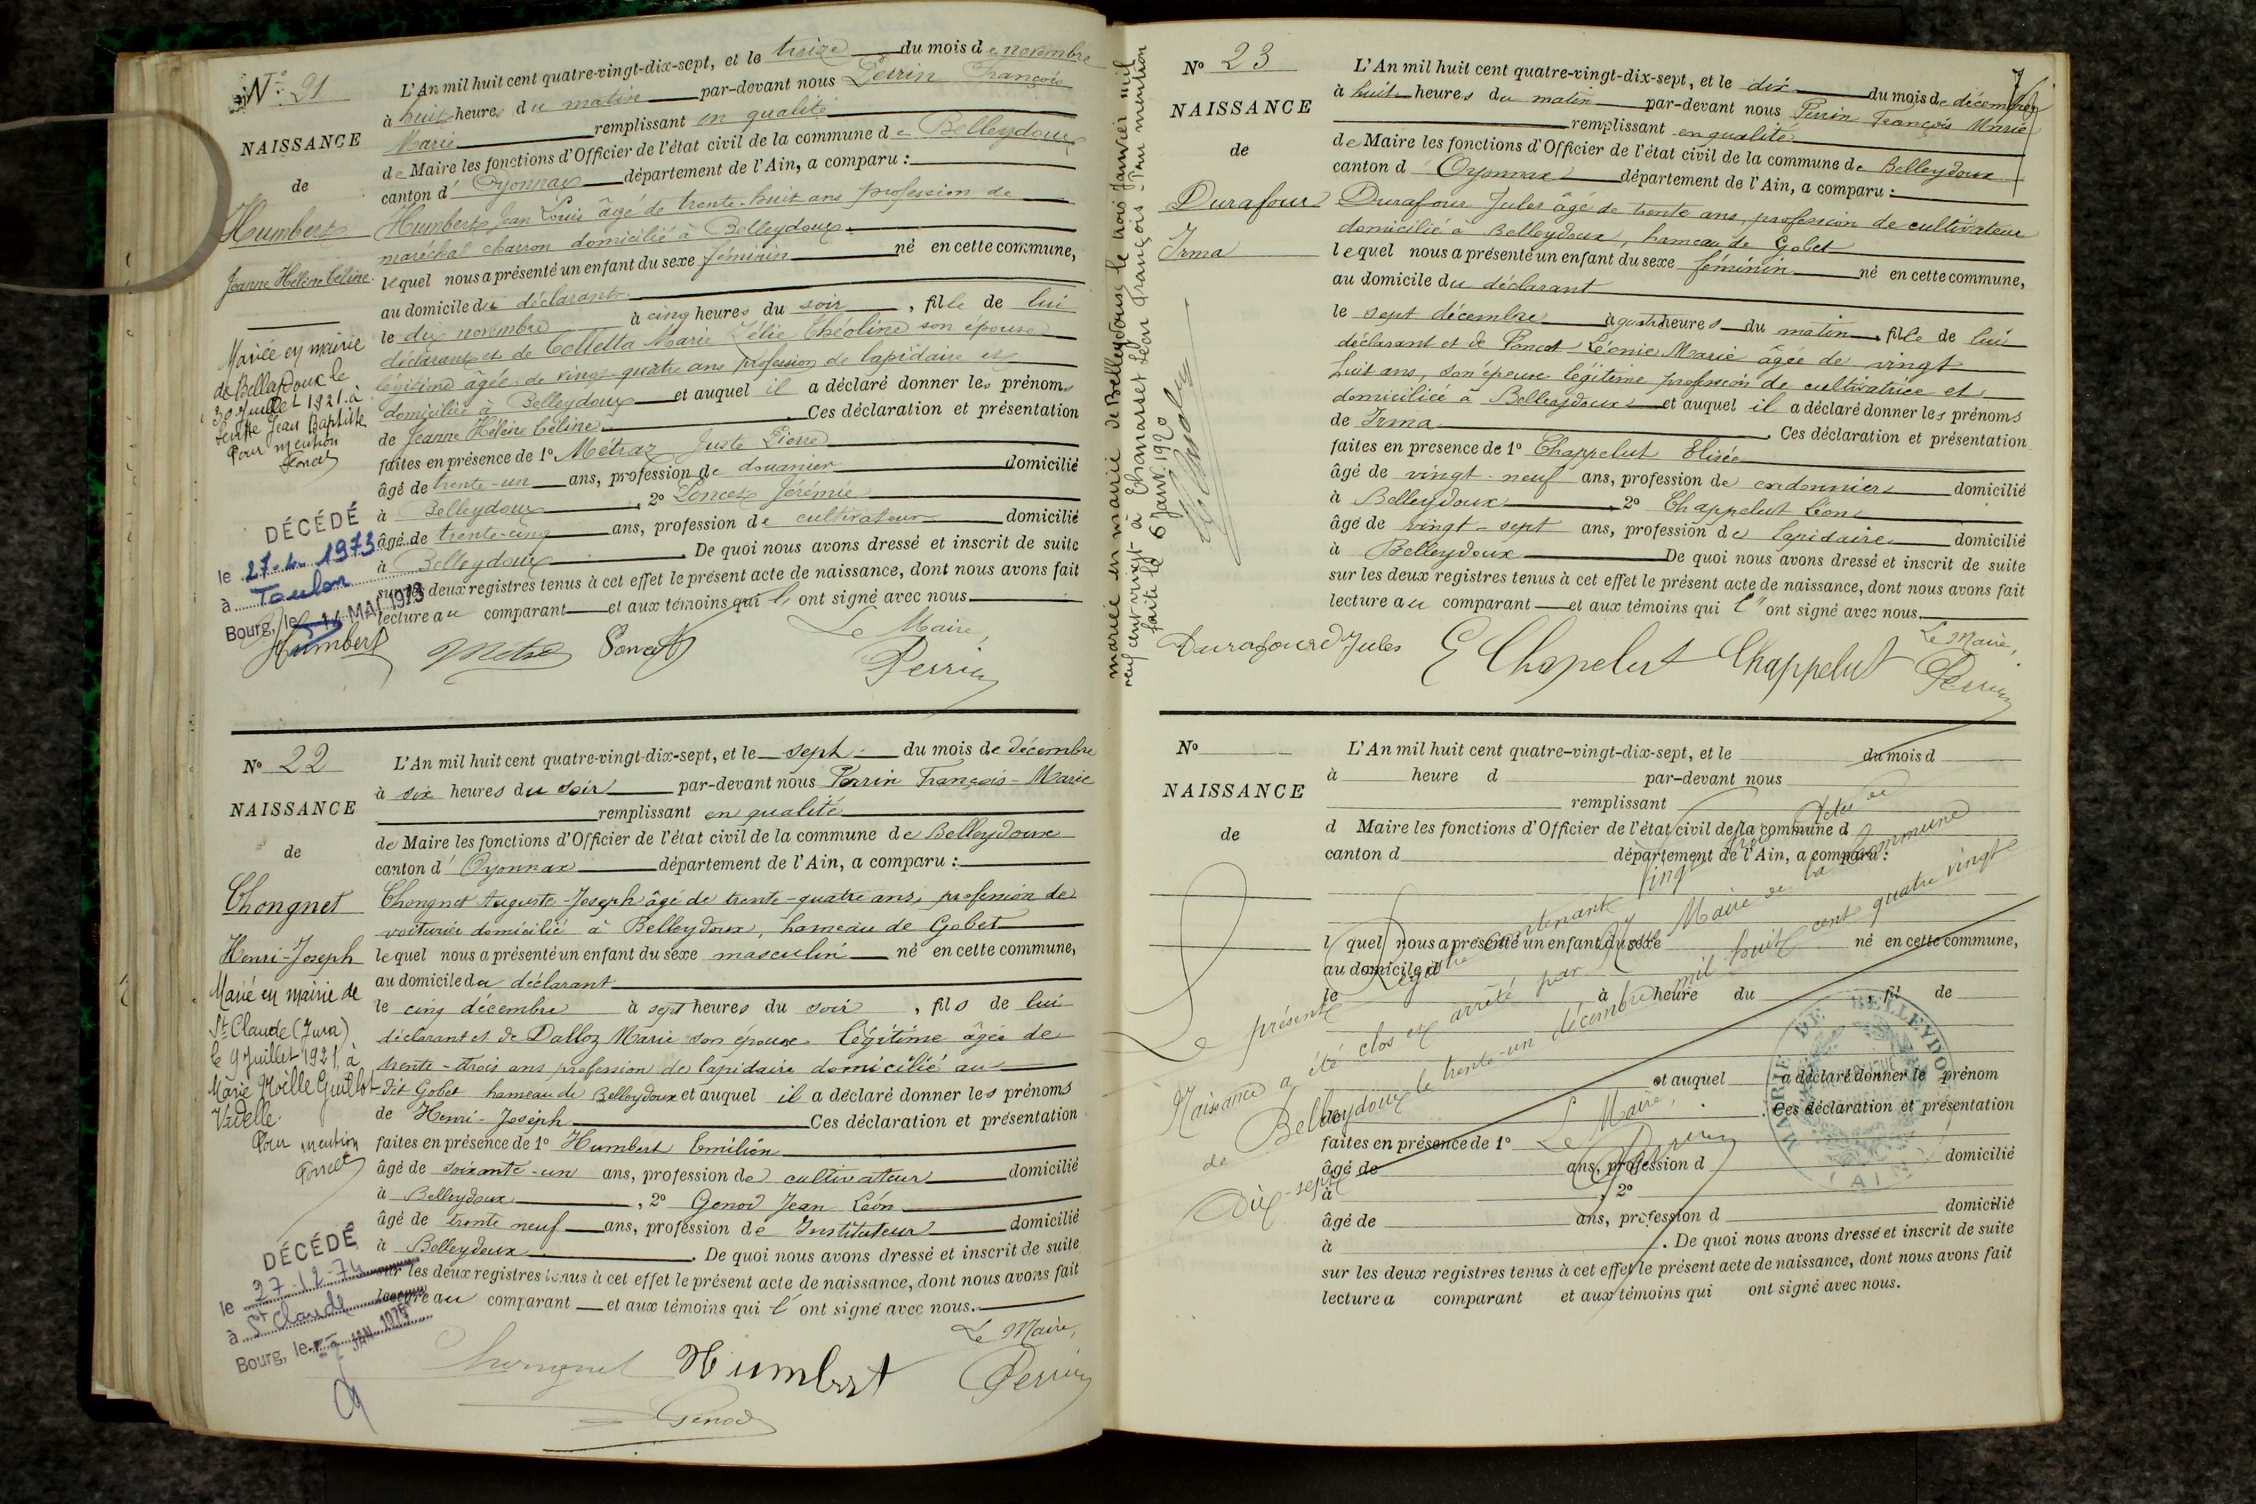 N° 21
NAISSANCE
de
Humbert
Jeanne Hélène Céline.
Mariée en mairie
de Belleydoux le
30 Juillet 1921 à
Jean Baptiste
Pour mention
Poncet
DÉCÉDÉ
le 27-4-1973
à Toulon
Bourg, le 14 MAI 1973
L'An mil huit cent quatre-vingt-dix-sept, et le treize du mois de novembre
à huit heures du matin par-devant nous Perrin François
Marie remplissant en qualité
de Maire les fonctions d'Officier de l'état civil de la commune de Belleydoux
canton d' Oyonnax département de l'Ain, a comparu :
Humbert Jean Louis âgé de trente-huit ans profession de
maréchal charron domicilié à Belleydoux
lequel nous a présenté un enfant du sexe féminin né en cette commune,
au domicile du déclarant
le dix novembre à cinq heures du soir, fille de lui
déclarant et de Colletta Marie Zélie Théoline son épouse
légitime âgée de vingt-quatre ans profession de lapidaire et
domiciliée à Belleydoux et auquel il a déclaré donner les prénoms
de Jeanne Hélène Céline. Ces déclaration et présentation
faites en présence de 1° Métraz Juste Pierre
âgé de trente-un ans, profession de douanier domicilié
à Belleydoux, 2° Poncet Jérémie
âgé de trente-cinq ans, profession de cultivateur domicilié
à Belleydoux. De quoi nous avons dressé et inscrit de suite
sur les deux registres tenus à cet effet le présent acte de naissance, dont nous avons fait
lecture au comparant et aux témoins qui l' ont signé avec nous.
Le Maire,
Humbert Poncet Perrin
N° 22
NAISSANCE
de
Chongnet
Henri-Joseph
Marié en mairie de
St Claude (Jura)
le 9 Juillet 1921 à
Marie Noëlle Guillot
Videlle.
Pour mention
Poncet
DÉCÉDÉ
le 27-12-74
à St Claude
Bourg, le JAN 1975
L'An mil huit cent quatre-vingt-dix-sept, et le sept du mois de décembre
à six heures du soir par-devant nous Perrin François-Marie
remplissant en qualité
de Maire les fonctions d'Officier de l'état civil de la commune de Belleydoux
canton d' Oyonnax département de l'Ain, a comparu :
Chongnet Auguste-Joseph âgé de trente-quatre ans, profession de
voiturier domicilié à Belleydoux, hameau de Gobet
lequel nous a présenté un enfant du sexe masculin né en cette commune,
au domicile du déclarant
le cinq décembre à sept heures du soir, fils de lui
déclarant et de Dalloz Marie son épouse légitime âgée de
trente-trois ans profession de lapidaire domicilié au
dit Gobet hameau de Belleydoux et auquel il a déclaré donner les prénoms
de Henri-Joseph Ces déclaration et présentation
faites en présence de 1° Humbert Emilien
âgé de soixante-un ans, profession de cultivateur domicilié
à Belleydoux, 2° Genod Jean Léon
âgé de trente neuf ans, profession de Instituteur domicilié
à Belleydoux. De quoi nous avons dressé et inscrit de suite
sur les deux registres tenus à cet effet le présent acte de naissance, dont nous avons fait
lecture au comparant et aux témoins qui l' ont signé avec nous.
Le Maire,
Chongnet Humbert Perrin
Genod
N° 23
NAISSANCE
de
Durafour
Irma
mariée en mairie de Belleydoux le trois Janvier mil
neuf cent vingt à Chanarset Léon François. Pour mention
faite le 6 Janv. 1920
L'An mil huit cent quatre-vingt-dix-sept, et le dix du mois de décembre
à huit heures du matin par-devant nous Perrin François Marie
remplissant en qualité
de Maire les fonctions d'Officier de l'état civil de la commune de Belleydoux
canton d' Oyonnax département de l'Ain, a comparu :
Durafour Jules âgé de trente ans, profession de cultivateur
domicilié à Belleydoux, hameau de Gobet
lequel nous a présenté un enfant du sexe féminin né en cette commune,
au domicile du déclarant
le sept décembre à quatre heures du matin, fille de lui
déclarant et de Poncet Léonie Marie âgée de vingt
huit ans, son épouse légitime profession de cultivatrice et
domiciliée à Belleydoux et auquel il a déclaré donner les prénoms
de Irma. Ces déclaration et présentation
faites en présence de 1° Chappelut Elisée
âgé de vingt-neuf ans, profession de cordonnier domicilié
à Belleydoux, 2° Chappelut Léon
âgé de vingt-sept ans, profession de lapidaire domicilié
à Belleydoux De quoi nous avons dressé et inscrit de suite
sur les deux registres tenus à cet effet le présent acte de naissance, dont nous avons fait
lecture au comparant et aux témoins qui l' ont signé avec nous.
Le Maire,
Durafourd Jules E Chapelut Chappelut Perrin
N°
NAISSANCE
de
L'An mil huit cent quatre-vingt-dix-sept, et le du mois d
à heure d par-devant nous
remplissant
d Maire les fonctions d'Officier de l'état civil de la commune d
canton d département de l'Ain, a comparu :
l quel nous a présenté un enfant du sexe né en cette commune,
au domicile d
le à heure du , fil de
et auquel a déclaré donner le prénom
de . Ces déclaration et présentation
faites en présence de 1°
âgé de ans, profession d domicilié
à , 2°
âgé de ans, profession d domicilié
à . De quoi nous avons dressé et inscrit de suite
sur les deux registres tenus à cet effet le présent acte de naissance, dont nous avons fait
lecture a comparant et aux témoins qui ont signé avec nous.
Le présent Registre contenant Vingt trois Actes de
Naissance a été clos et arrêté par Nous Maire de la Commune
de Belleydoux le trente-un décembre mil huit cent quatre vingt
Dix-sept
Le Maire,
Perrin
MAIRIE DE BELLEYDOUX
AIN